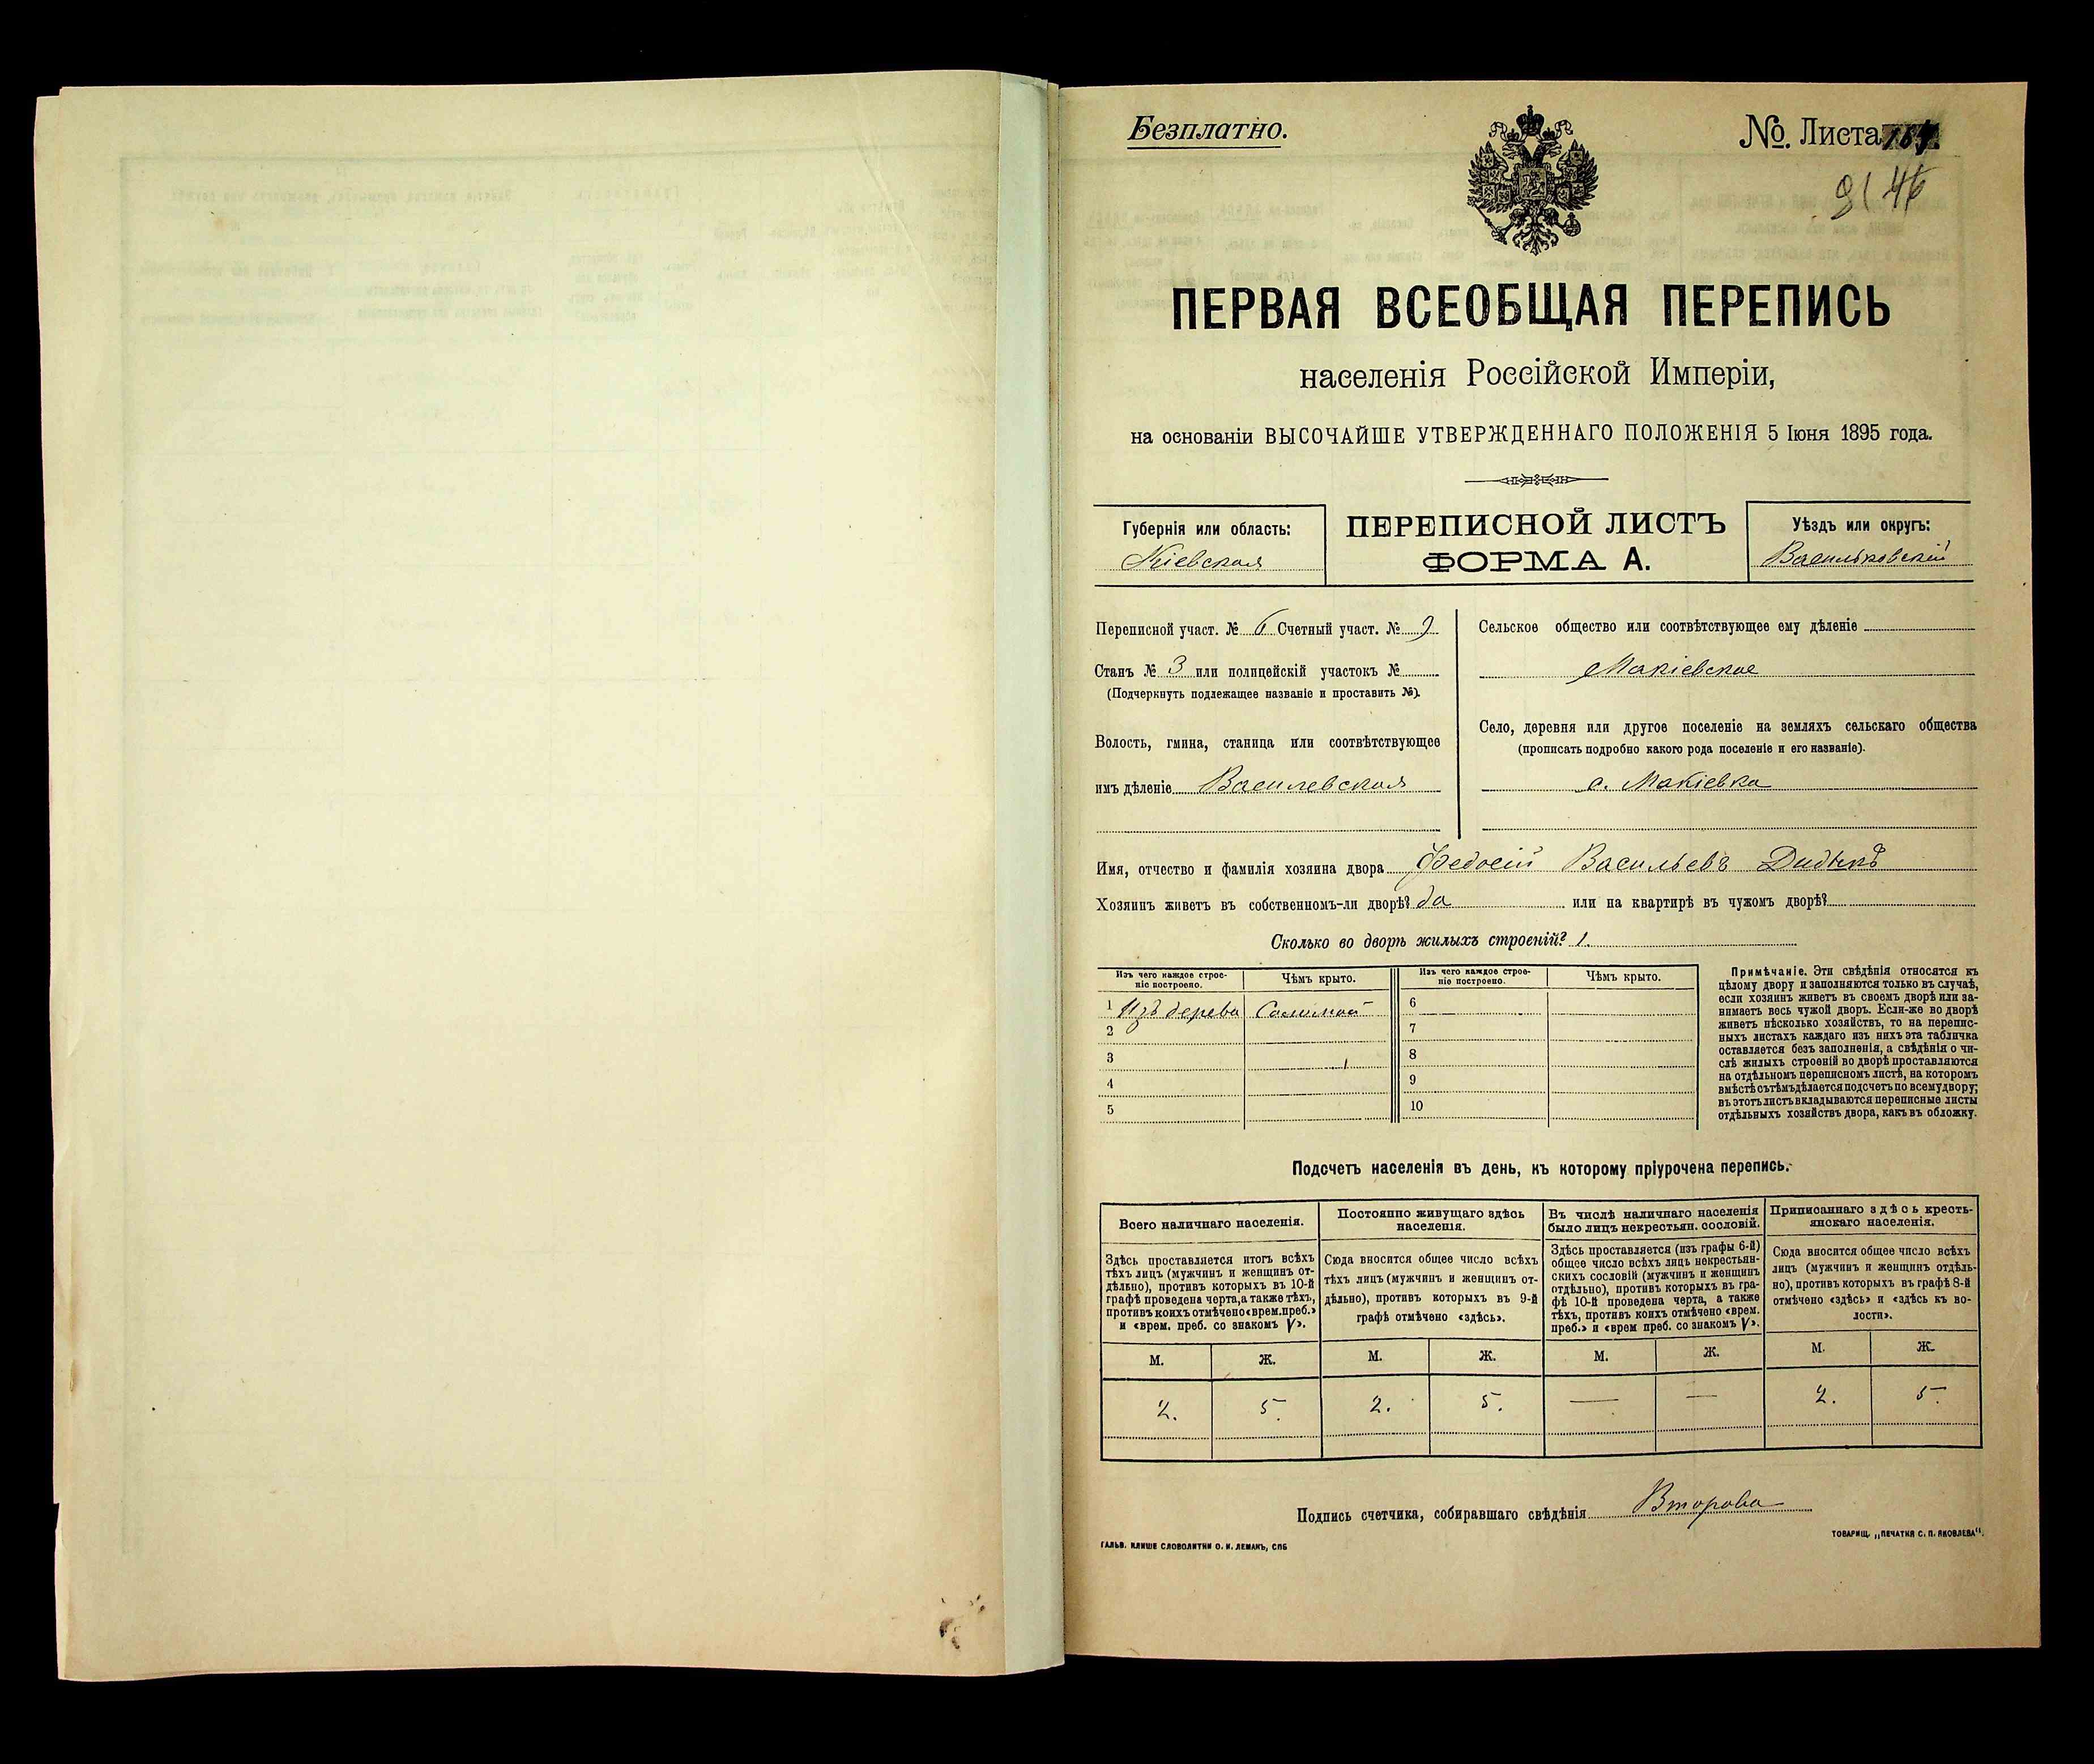 Безплатно.
№. Листа
91 46
ПЕРВАЯ ВСЕОБЩАЯ ПЕРЕПИСЬ
населенія Россійской Имперіи,
на основаніи ВЫСОЧАЙШЕ УТВЕРЖДЕННАГО ПОЛОЖЕНІЯ 5 Іюня 1895 года.
Губернія или область:
Кіевская
ПЕРЕПИСНОЙ ЛИСТЪ
ФОРМА А.
Уѣздъ или округъ:
Васильковскій
Переписной участ. № 6 Счетный участ. № 9
Станъ № 3 или полицейскій участокъ №
(Подчеркнуть подлежащее названіе и проставить №).
Волость, гмина, станица или соотвѣтствующее
имъ дѣленіе Василевская
Сельское общество или соотвѣтствующее ему дѣленіе
Макіевское
Село, деревня или другое поселеніе на земляхъ сельскаго общества
(прописать подробно какого рода поселеніе и его названіе).
с. Макіевка
Имя, отчество и фамилія хозяина двора Федосій Васильевъ Дидыкъ
Хозяинъ живетъ въ собственномъ-ли дворѣ? да или на квартирѣ въ чужомъ дворѣ?
Сколько во дворѣ жилыхъ строеній? 1
Изъ чего каждое строе-
ніе построено.
Чѣмъ крыто.
1 Изъ дерева Соломой
2
3
4
5
Изъ чего каждое строе-
ніе построено.
Чѣмъ крыто.
6
7
8
9
10
Примѣчаніе. Эти свѣдѣнія относятся къ
цѣлому двору и заполняются только въ случаѣ,
если хозяинъ живетъ въ своемъ дворѣ или за-
нимаетъ весь чужой дворъ. Если-же во дворѣ
живетъ нѣсколько хозяйствъ, то на перепис-
ныхъ листахъ каждаго изъ нихъ эта табличка
оставляется безъ заполненія, а свѣдѣнія о чи-
слѣ жилыхъ строеній во дворѣ проставляются
на отдѣльномъ переписномъ листѣ, на которомъ
вмѣстѣ съ тѣмъ дѣлается подсчетъ по всему двору;
въ этотъ листъ вкладываются переписные листы
отдѣльныхъ хозяйствъ двора, какъ въ обложку.
Подсчетъ населенія въ день, къ которому пріурочена перепись.
Всего наличнаго населенія.
Здѣсь проставляется итогъ всѣхъ
тѣхъ лицъ (мужчинъ и женщинъ от-
дѣльно), противъ которыхъ въ 10-й
графѣ проведена черта, а также тѣхъ,
противъ коихъ отмѣчено «врем. преб.»
и «врем. преб. со знакомъ V».
Постоянно живущаго здѣсь
населенія.
Сюда вносится общее число всѣхъ
тѣхъ лицъ (мужчинъ и женщинъ от-
дѣльно), противъ которыхъ въ 9-й
графѣ отмѣчено «здѣсь».
Въ числѣ наличнаго населенія
было лицъ некрестьян. сословій.
Здѣсь проставляется (изъ графы 6-й)
общее число всѣхъ лицъ некрестьян-
скихъ сословій (мужчинъ и женщинъ
отдѣльно), противъ которыхъ въ гра-
фѣ 10-й проведена черта, а также
тѣхъ, противъ коихъ отмѣчено «врем.
преб.» и «врем преб. со знакомъ V».
Приписаннаго здѣсь кресть-
янскаго населенія.
Сюда вносится общее число всѣхъ
лицъ (мужчинъ и женщинъ отдѣль-
но), противъ которыхъ въ графѣ 8-й
отмѣчено «здѣсь» и «здѣсь къ во-
лости».
М. Ж. М. Ж. М. Ж. М. Ж.
2. 5. 2. 5. — — 2. 5.
Подпись счетчика, собиравшаго свѣдѣнія Второва
ГАЛЬВ. КЛИШЕ СЛОВОЛИТНИ О. И. ЛЕМАНЪ, СПБ
ТОВАРИЩ. „ПЕЧАТНЯ С. П. ЯКОВЛЕВА“.